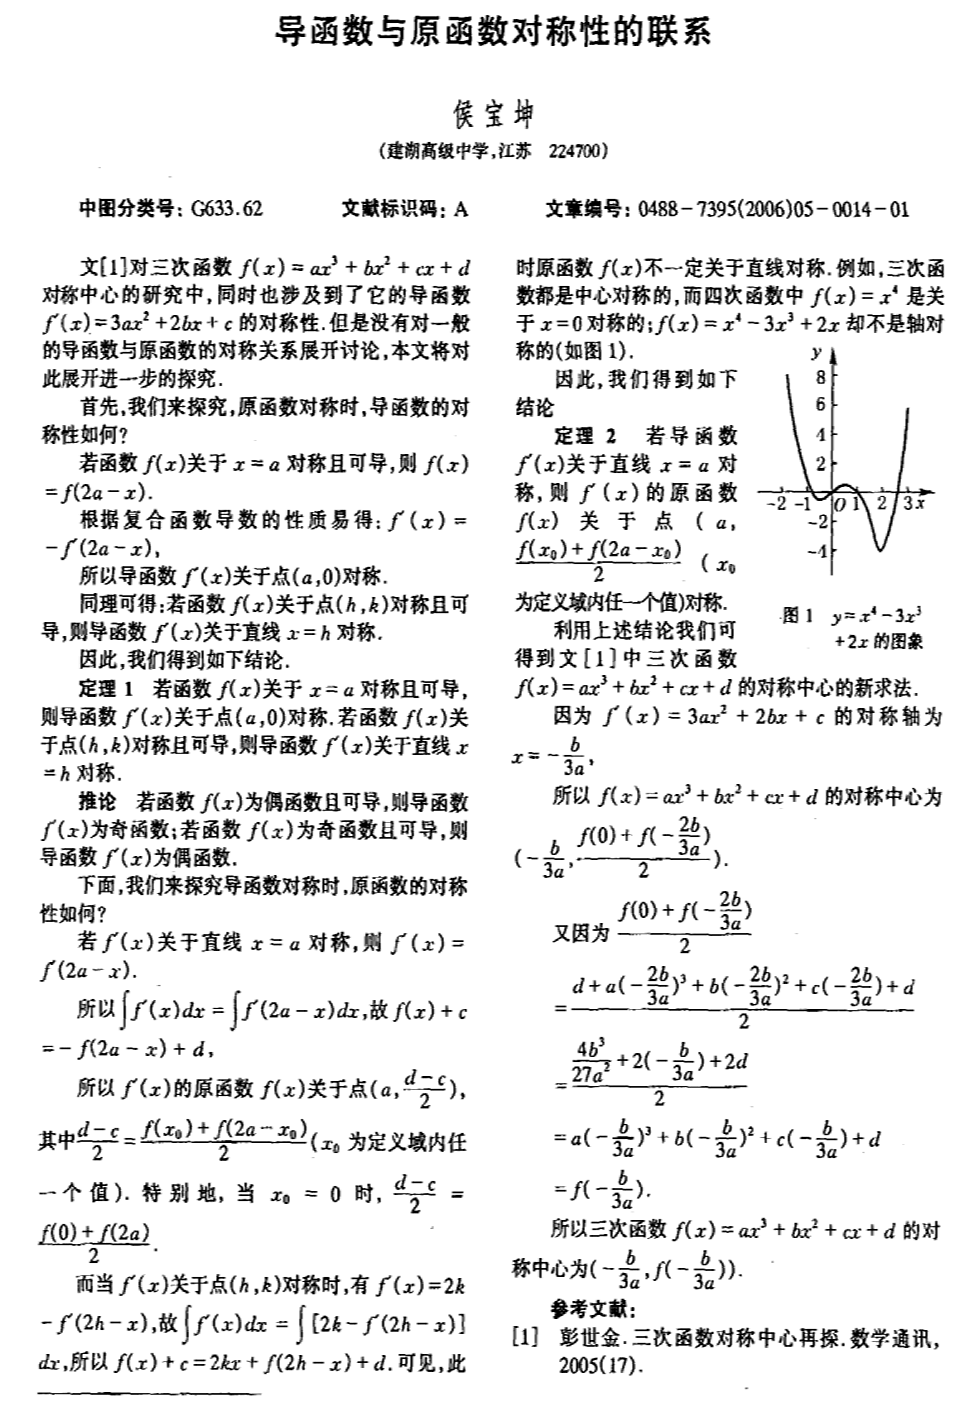 导函数与原函数对称性的联系
侯宝坤
(建湖高级中学,江苏 224700)
中图分类号: G633.62 文献标识码: A 文章编号: 0488-7395(2006)05-0014-01
文[1]对三次函数 f(x) = ax³ + bx² + cx + d
对称中心的研究中,同时也涉及到了它的导函数
f′(x)=3ax²+2bx+c 的对称性.但是没有对一般
的导函数与原函数的对称关系展开讨论,本文将对
此展开进一步的探究.
首先,我们来探究,原函数对称时,导函数的对
称性如何?
若函数 f(x)关于 x=a 对称且可导,则 f(x)
=f(2a-x).
根据复合函数导数的性质易得: f′(x) =
-f′(2a-x),
所以导函数 f′(x)关于点(a,0)对称.
同理可得:若函数 f(x)关于点(h,k)对称且可
导,则导函数 f′(x)关于直线 x=h 对称.
因此,我们得到如下结论.
定理 1 若函数 f(x)关于 x=a 对称且可导,
则导函数 f′(x)关于点(a,0)对称.若函数 f(x)关
于点(h,k)对称且可导,则导函数 f′(x)关于直线 x
=h 对称.
推论 若函数 f(x)为偶函数且可导,则导函数
f′(x)为奇函数;若函数 f(x)为奇函数且可导,则
导函数 f′(x)为偶函数.
下面,我们来探究导函数对称时,原函数的对称
性如何?
若 f′(x)关于直线 x=a 对称,则 f′(x) =
f′(2a-x).
所以∫f′(x)dx = ∫f′(2a-x)dx,故 f(x)+c
=-f(2a-x)+d,
所以 f′(x)的原函数 f(x)关于点(a,(d-c)/2),
其中(d-c)/2=(f(x₀)+f(2a-x₀))/2(x₀ 为定义域内任
一个值). 特别地, 当 x₀ = 0 时, (d-c)/2 =
(f(0)+f(2a))/2.
而当 f′(x)关于点(h,k)对称时,有 f′(x)=2k
-f′(2h-x),故∫f′(x)dx = ∫[2k-f′(2h-x)]
dx,所以 f(x)+c=2kx+f(2h-x)+d.可见,此
时原函数 f(x)不一定关于直线对称.例如,三次函
数都是中心对称的,而四次函数中 f(x)=x⁴ 是关
于 x=0 对称的;f(x)=x⁴-3x³+2x 却不是轴对
称的(如图 1).
因此,我们得到如下
结论
定理 2 若导函数
f′(x)关于直线 x=a 对
称,则 f′(x)的原函数
f(x) 关 于 点 (a,
(f(x₀)+f(2a-x₀))/2 (x₀
为定义域内任一个值)对称.
利用上述结论我们可
得到文[1]中三次函数
y
8
6
4
2
-2 -1 O 1 2 3 x
-2
-4
图 1 y=x⁴-3x³
+2x 的图象
f(x)=ax³+bx²+cx+d 的对称中心的新求法.
因为 f′(x) = 3ax² + 2bx + c 的对称轴为
x=-b/3a,
所以 f(x)=ax³+bx²+cx+d 的对称中心为
(-b/3a,(f(0)+f(-2b/3a))/2).
又因为 (f(0)+f(-2b/3a))/2
=(d+a(-2b/3a)³+b(-2b/3a)²+c(-2b/3a)+d)/2
=(4b³/27a²+2(-b/3a)+2d)/2
=a(-b/3a)³+b(-b/3a)²+c(-b/3a)+d
=f(-b/3a).
所以三次函数 f(x)=ax³+bx²+cx+d 的对
称中心为(-b/3a,f(-b/3a)).
参考文献:
[1] 彭世金.三次函数对称中心再探.数学通讯,
2005(17).